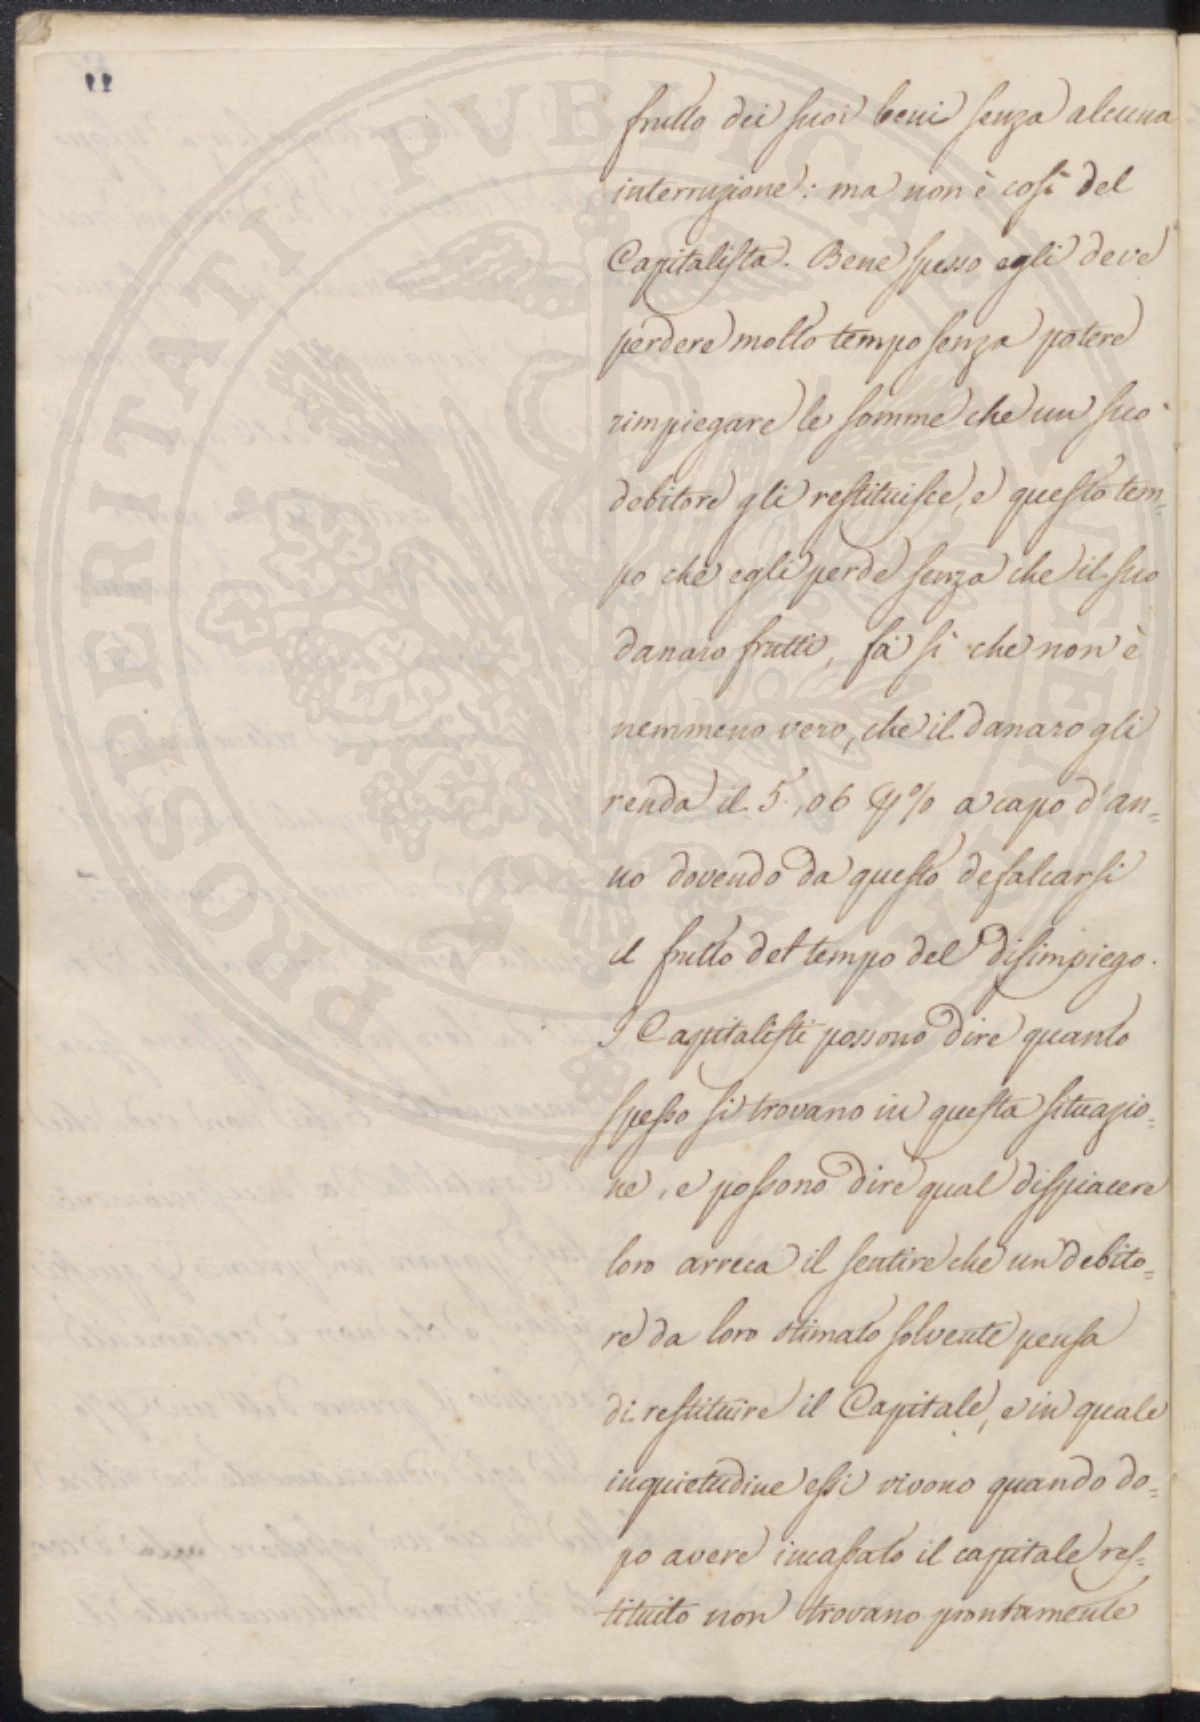 11
PROSPERITATI PVBLICAE AVGENDAE
frutto dei suoi beni senza alcuna
interruzione: ma non è così del
Capitalista. Bene spesso egli deve
perdere molto tempo senza potere
rimpiegare le somme che un suo
debitore gli restituisce, e questo tem=
po che egli perde senza che il suo
danaro frutti, fà sì che non è
nemmeno vero, che il danaro gli
renda il 5.,06 p% a capo d'an=
no dovendo da questo defalcarsi
il frutto del tempo del disimpiego.
I Capitalisti possono dire quanto
spesso si trovano in questa situazio=
ne, e possono dire qual dispiacere
loro arreca il sentire che un debito=
re da loro stimato solvente pensa
di restituire il Capitale, e in quale
inquietudine essi vivono quando do=
po avere incassato il capitale res=
tituito non trovano prontamente